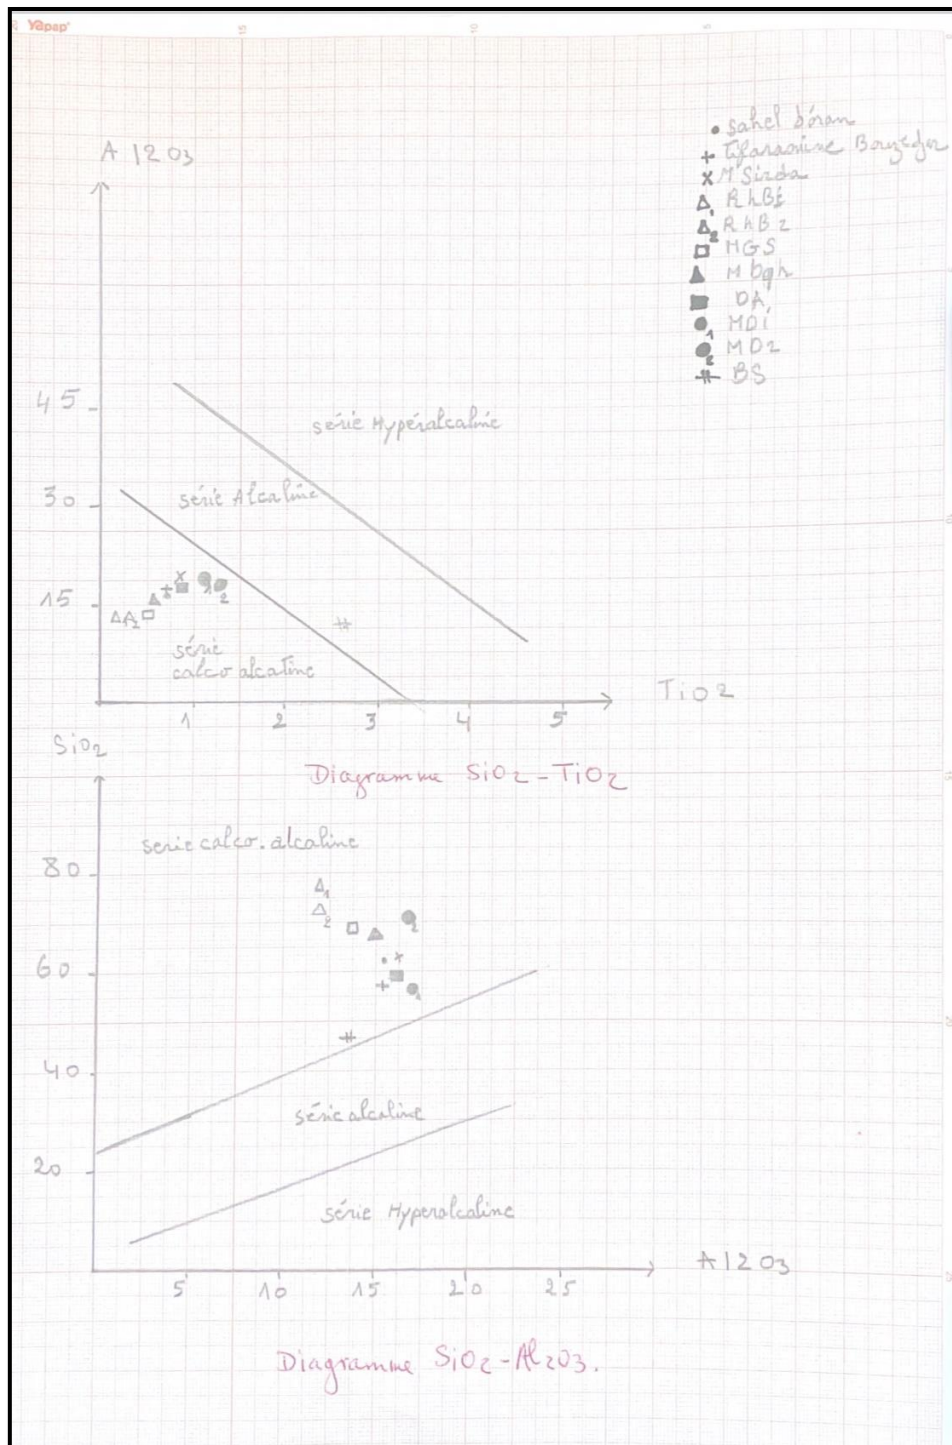 Yapap
15
10
5
Al2O3
• Sahel d'oran
+ Tifaraouine Bouzédjer
× M'Sirda
△1 RhB1
△2 RhB2
□ MGS
▲ Mbgh
■ DA
●1 MD1
●2 MD2
BS
45
30
15
série Hypéralcaline
série Alcaline
série
calco alcaline
1 2 3 4 5
TiO2
Diagramme SiO2-TiO2
SiO2
80
60
40
20
serie calco.alcaline
1
2
2
1
série alcaline
série Hyperalcaline
5 10 15 20 25
Al2O3
Diagramme SiO2-Al2O3.